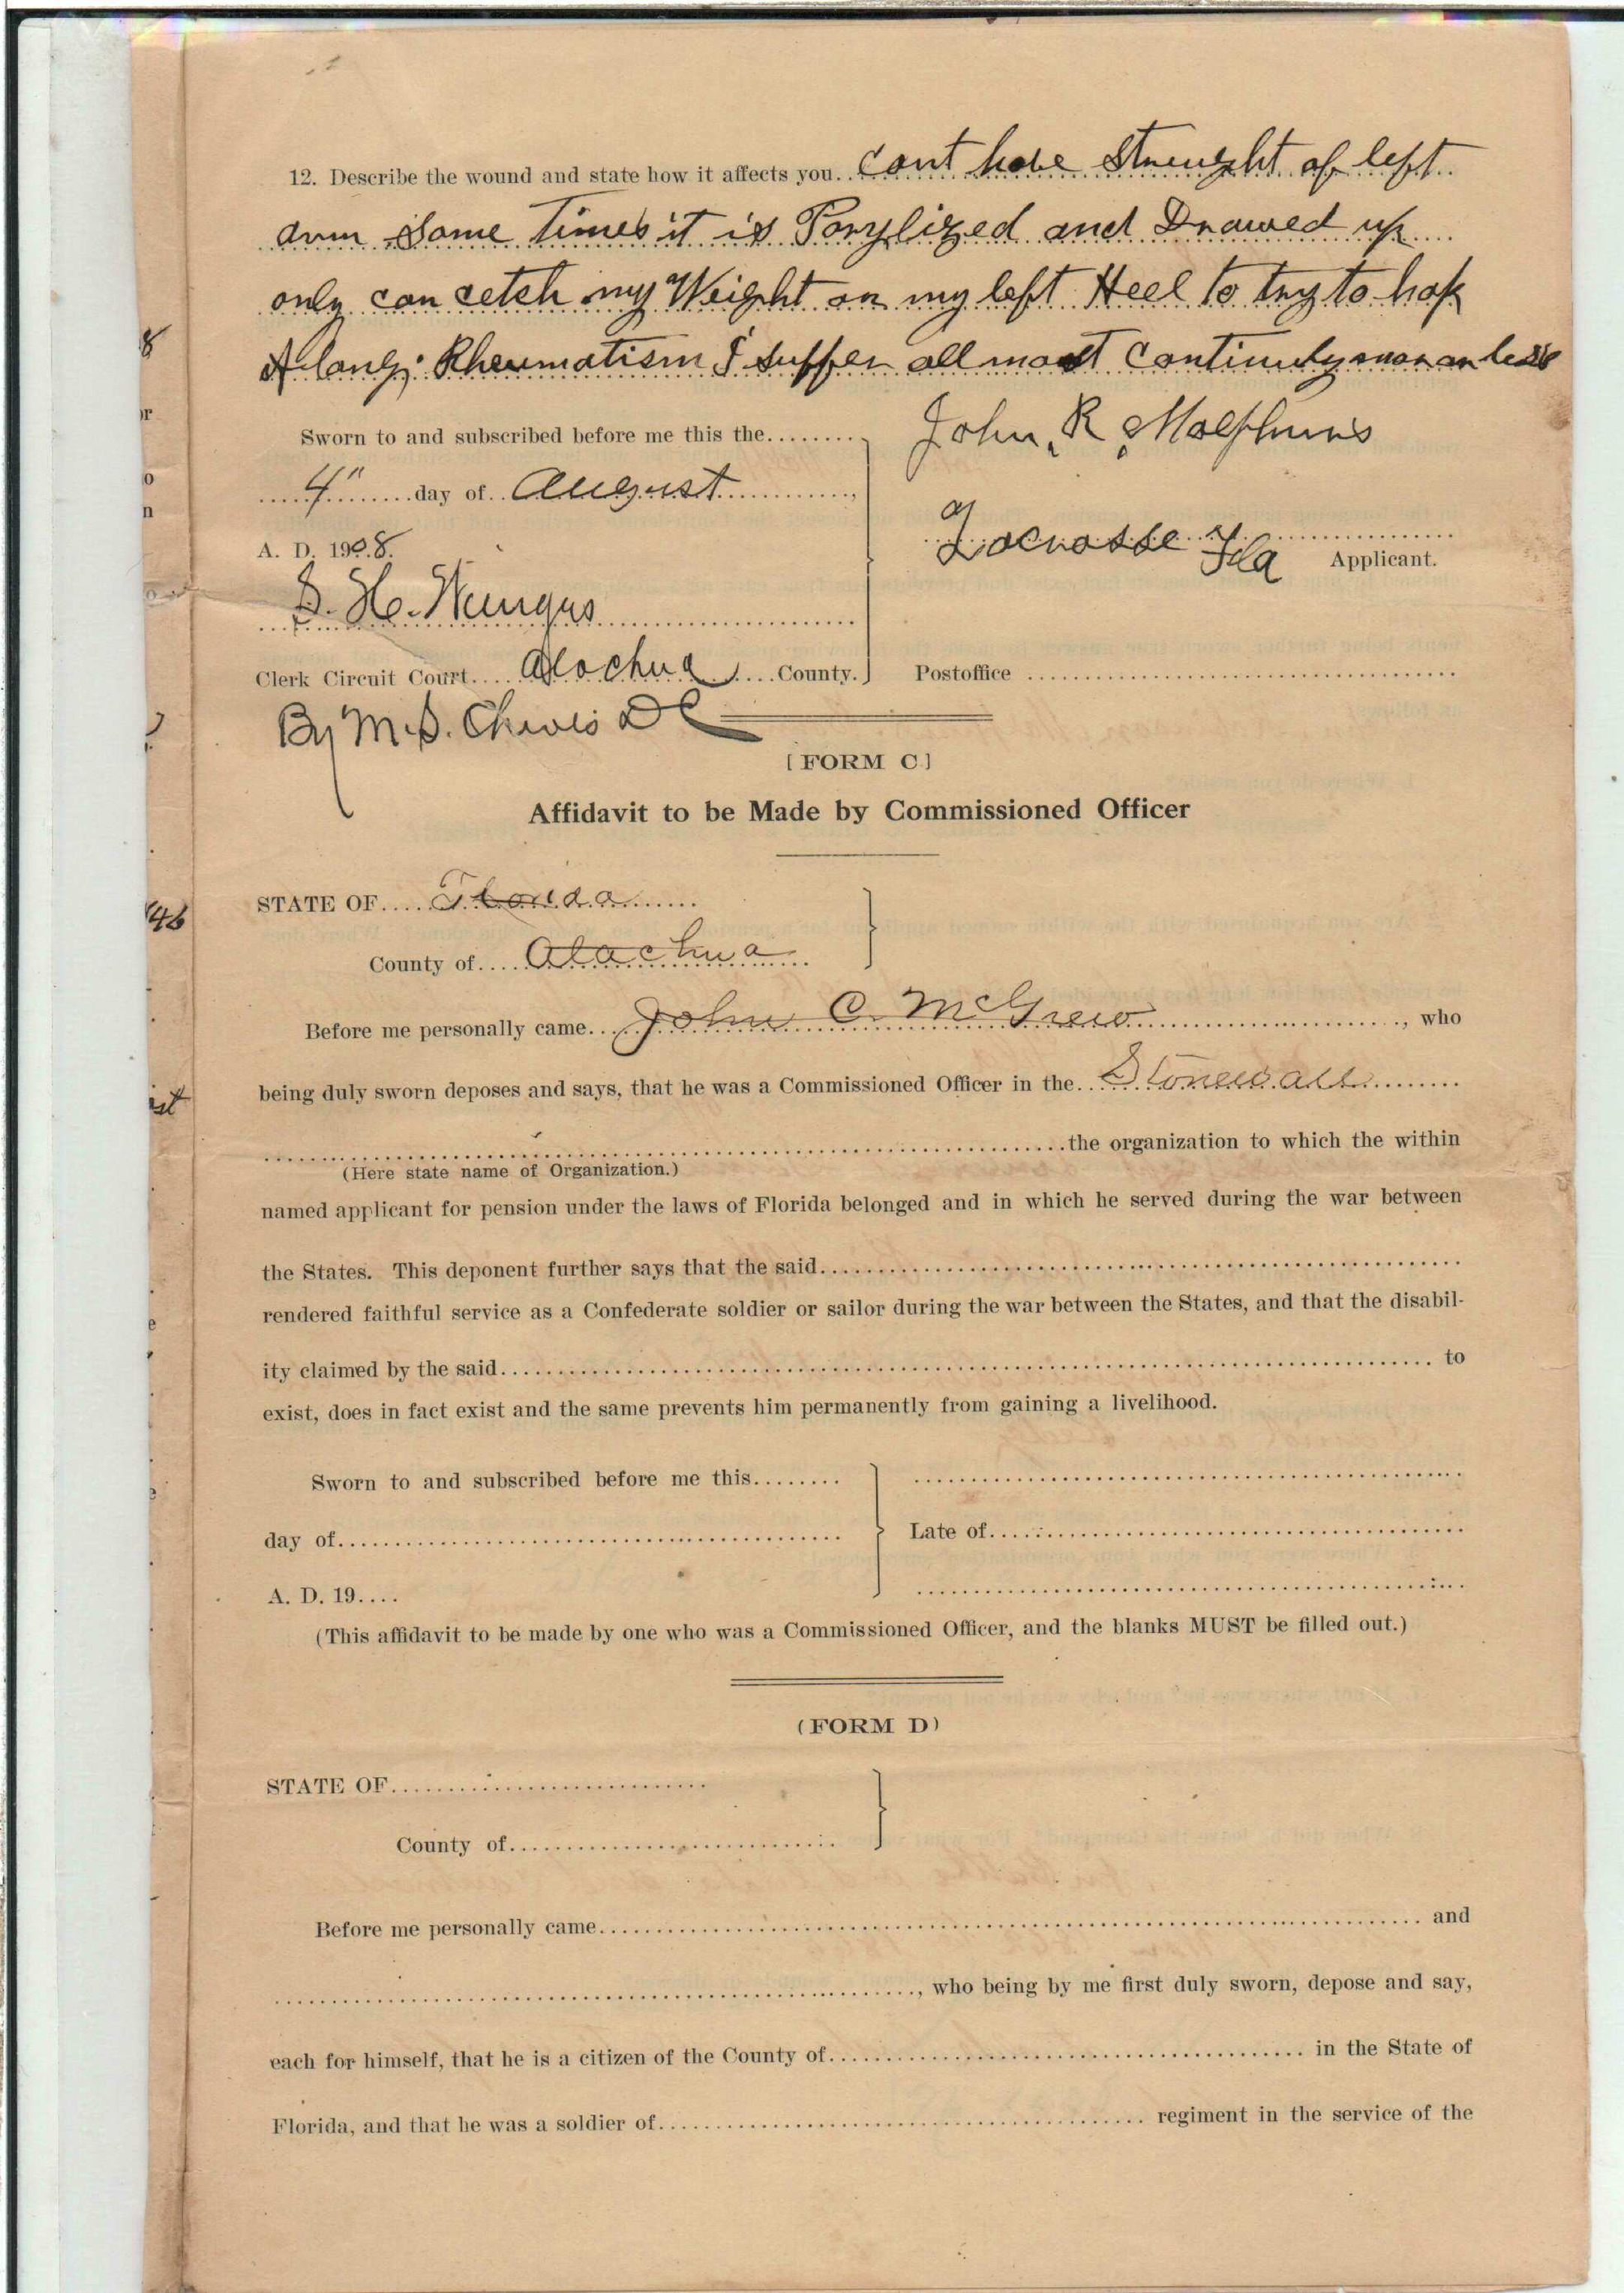 12. Describe the wound and state how it affects you.. Cant have Strenght of left
arm Some Times it is Parylized and Drawed up
only can cetch my Weight on my left Heel to try to hop
A long; Rheumatism I suffer all most Continuly mor or less
Sworn to and subscribed before me this the........
John, R,
4" day of August
A. D. 1908.
Lacrosse Fla
Applicant.
S. H. Wienges
Clerk Circuit Court.... Alachua .... County.
Postoffice
By M.S. Cheves DC
[FORM C]
Affidavit to be Made by Commissioned Officer
STATE OF..... Florida
County of.... Alachua
Before me personally came.. John C. McGrew, who
being duly sworn deposes and says, that he was a Commissioned Officer in the. Stonewall
the organization to which the within
(Here state name of Organization.)
named applicant for pension under the laws of Florida belonged and in which he served during the war between
the States. This deponent further says that the said
rendered faithful service as a Confederate soldier or sailor during the war between the States, and that the disabil-
ity claimed by the said to
exist, does in fact exist and the same prevents him permanently from gaining a livelihood.
Sworn to and subscribed before me this
day of
Late of
A. D. 19....
(This affidavit to be made by one who was a Commissioned Officer, and the blanks MUST be filled out.)
(FORM D)
STATE OF
County of
Before me personally came and
, who being by me first duly sworn, depose and say,
each for himself, that he is a citizen of the County of in the State of
Florida, and that he was a soldier of regiment in the service of the